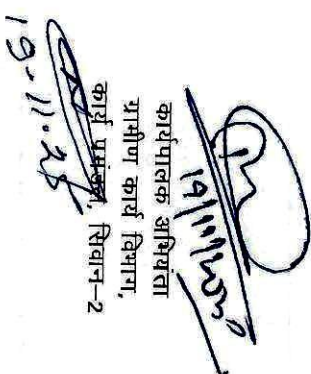 कार्यपालक अभियंता
ग्रामीण कार्य विभाग,
कार्य प्रमंडल, सिवान-2
19-11-25